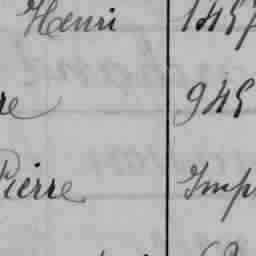 Henri 1457
re 945
Pierre Imp